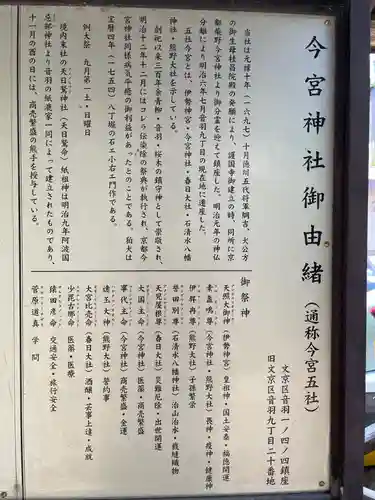 今宮神社御由緒（通称今宮五社）
文京区音羽一ノ四ノ四鎮座
旧文京区音羽九丁目二十番地
当社は元禄十年（一六九七）十月徳川五代将軍綱吉、大公方
の御生母桂昌院の発願により、護国寺御建立の時、同所に京
都紫野今宮神社より御分霊を迎えて鎮座した。明治元年の神仏
分離により明治六年七月音羽九丁目の現在地に遷座した。
五社今宮とは、伊勢神宮・今宮神社・春日大社・石清水八幡
神社・熊野大社を示している。
創祀以来三百年余青柳・音羽・桜木の鎮守神として崇敬され、
明治十二年十二月にはコレラ伝染除の祭典が執行され、京都今
宮神社同様病気平癒の御利益があったとのことである。狛犬は
宝暦四年（一七五四）八丁堀の石工小右エ門作である。
例大祭　九月第一土・日曜日
境内末社の天日鷲神社（天日鷲命）紙祖神は明治九年阿波国
忌部神社より音羽の紙漉家一同によって建立されたものであり、
十一月の酉の日には、商売繁盛の熊手を授与している。
御祭神
天照大御神（伊勢神宮）皇祖神・国土安泰・福徳開運
素盞嗚尊（今宮神社・熊野大社）農神・疫神・健康神
伊弉冉尊（熊野大社）子孫繁栄
誉田別尊（石清水八幡神社）治山治水・裁縫織物
天児屋根尊（春日大社）災難厄除・出世開運
大国主命（今宮神社）医薬・商売繁盛
事代主命（今宮神社）商売繁盛・金運
速玉大神（熊野大社）誓約事
大宮比売命（春日大社）酒醸・芸事上達・成就
少毘古那命　医薬・医療
猿田彦命　交通安全・旅行安全
菅原道真　学問